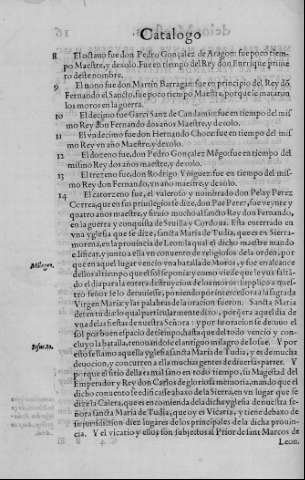 Catalogo
8 El octauo fue don Pedro Gonçalez de Aragon: fue poco tiem
po Maestre, y dexolo. Fue en tiempo del Rey don Enrrique prime
ro deste nombre.
9 El nono fue don Martin Barragan: fue en principio del Rey dō
Fernando el Sancto, fue poco tiempo Maestre, porque le mataron
los moros en la guerra.
10 El decimo fue Garci Sanz de Candamio: fue en tiempo del mis
mo Rey don Fernando dos años Maestre, y dexolo.
11 El vndecimo fue don Hernando Choce: fue en tiempo del mis
mo Rey vn año Maestre, y dexolo.
12 El dozeno fue, don Pedro Gonçalez Mēgo: fue en tiempo del
mismo Rey dos años maestre, y dexolo.
13 El trezeno fue, don Rodrigo Yñiguez: fue en tiempo del mis-
mo Rey don Fernando, vn año maestre, y dexolo.
14 El catorzeno fue, el valeroso y nombrado don Pelay Perez
Correa, que en sus priuilegios se dize, don Pae Perez, fue veynte y
quatro años maestre, y siruio mucho al sancto Rey don Fernando,
en la guerra y conquista de Seuilla y Cordoua. Esta enterrado en
vna yglesia que se dize, sancta Maria de Tudia, que es en Sierra-
morena, en la prouincia de Leon: la qual el dicho maestre mando
edificar, y junto a ella vn conuento de religiosos de la orden, por
que en aquel lugar vencio vna batalla de Moros, y fue en alcance
dellos al tiempo que el sol se ponia
Milagro.
tro señor se lo
Virgen Maria: y las palabras de la oracion fueron: Sancta Maria
deten tu dia: lo qual particularmente dixo, porque era aquel dia de
vna de las fiestas de nuestra Señora: y por su oracion se detuuo el
sol por vn buen espacio de tiempo, hasta que del todo vencio y con-
Iosue. 10.
cluyo la batalla, renouandose el antiguo milagro de Iosue. Y por
esto se llamo aquella yglesia sancta Maria de Tudia, y es de mucha
deuocion, y concurren a ella muchas gentes de diuersas partes. Y
porque el sitio della es mal sano en todo tiempo, su Magestad del
Emperador y Rey don Carlos de gloriosa memoria, mando que el
dicho conuento se edificasse abaxo de la Sierra, en vn lugar que se
dize la Calera, que es en comienda de la dicha yglesia de nuestra se
ñora sancta Maria de Tudia, que oy es Vicaria, y tiene debaxo de
su jurisdicion diez lugares de los principales de la dicha prouin-
cia. Y el vicario y ellos son subjectos al Prior de sant Marcos de
Leon.